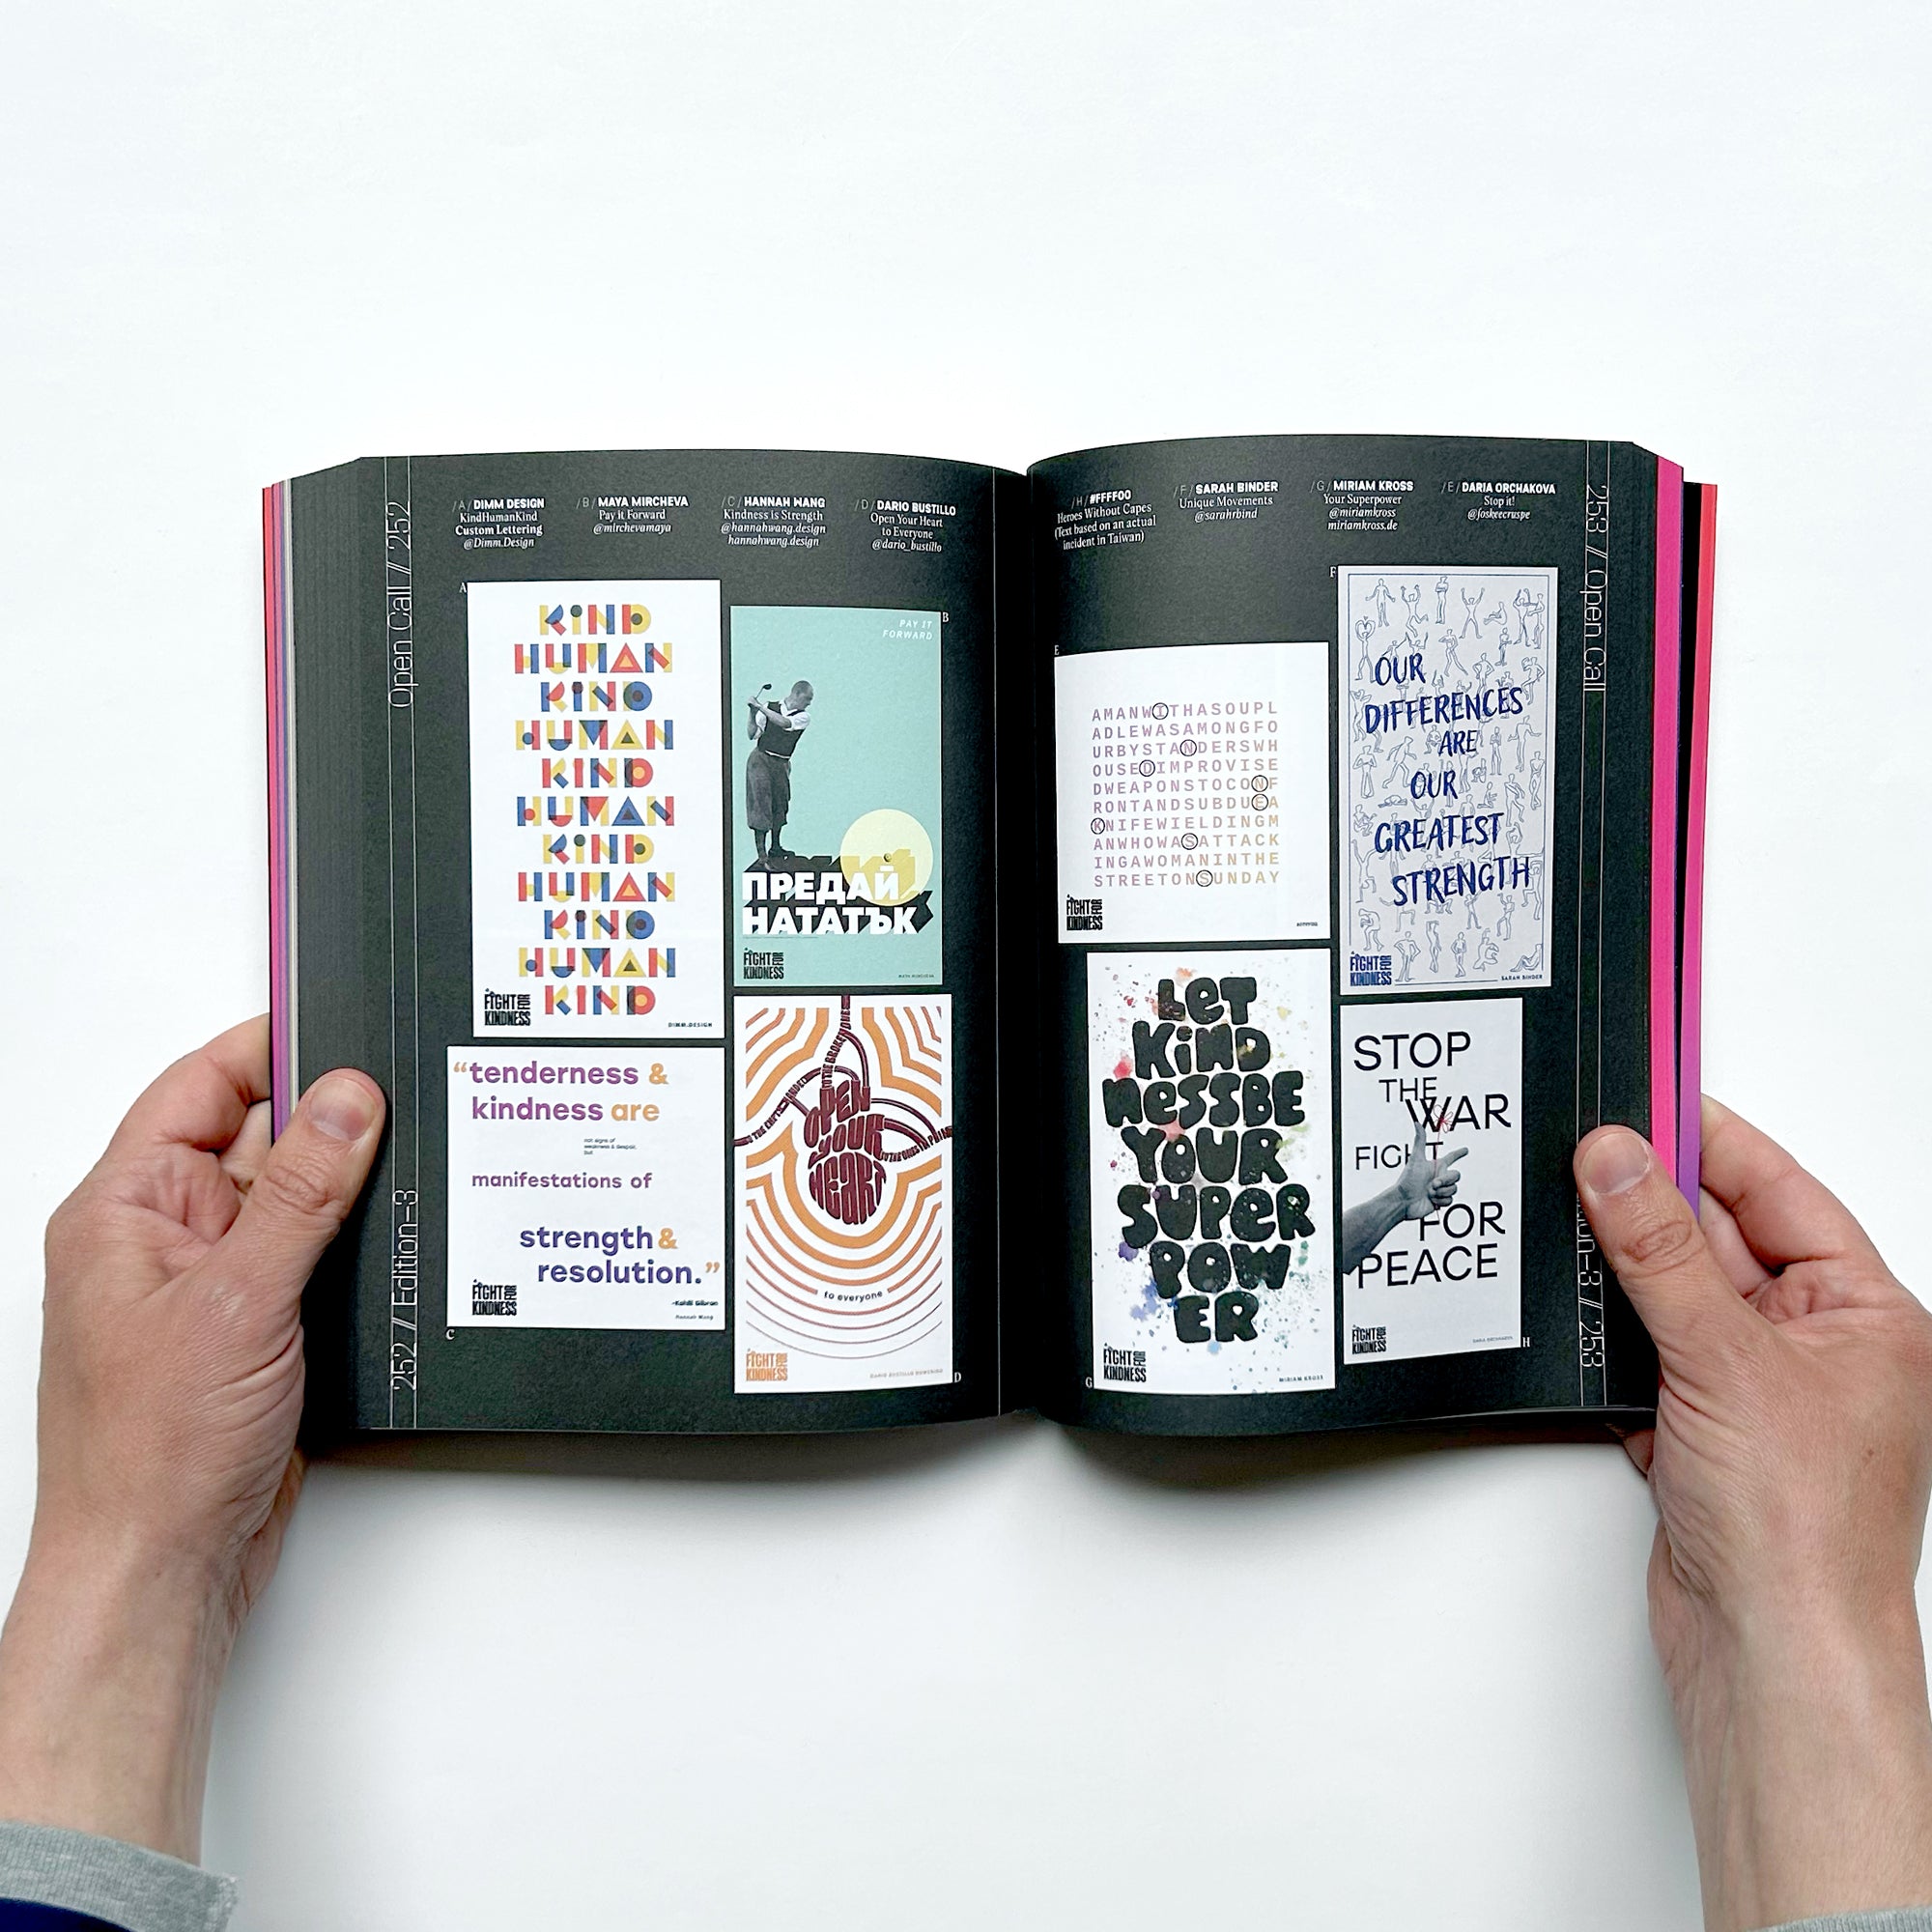 Open Call // 252
252 // Edition–3
/A/ DIMM DESIGN
KindHumanKind
Custom Lettering
@Dimm.Design
/B/ MAYA MIRCHEVA
Pay it Forward
@mirchevamaya
/C/ HANNAH WANG
Kindness is Strength
@hannahwang.design
hannahwang.design
/D/ DARIO BUSTILLO
Open Your Heart
to Everyone
@dario_bustillo
A
KIND
HUMAN
KIND
HUMAN
KIND
HUMAN
KIND
HUMAN
KIND
HUMAN
KIND
FIGHT FOR
KINDNESS
DIMM.DESIGN
B
PAY IT
FORWARD
ПРЕДАЙ
НАТАТЪК
FIGHT FOR
KINDNESS
C
“tenderness &
kindness are
not signs of
weakness & despair,
but
manifestations of
strength &
resolution.”
-Kahlil Gibran
Hannah Wang
FIGHT FOR
KINDNESS
D
OPEN
YOUR
HEART
to everyone
FIGHT FOR
KINDNESS
/H/ #FFFF00
Heroes Without Capes
(Text based on an actual
incident in Taiwan)
/F/ SARAH BINDER
Unique Movements
@sarahrbind
/G/ MIRIAM KROSS
Your Superpower
@miriamkross
miriamkross.de
/E/ DARIA ORCHAKOVA
Stop it!
@foskeecruspe
253 // Open Call
E
AMANWITHASOUPL
ADLEWASAMONGFO
URBYSTANDERSWH
OUSEDIMPROVISE
DWEAPONSTOCONF
RONTANDSUBDUEA
KNIFEWIELDINGM
ANWHOWASATTACK
INGAWOMANINTHE
STREETONSUNDAY
FIGHT FOR
KINDNESS
F
OUR
DIFFERENCES
ARE
OUR
GREATEST
STRENGTH
FIGHT FOR
KINDNESS
SARAH BINDER
G
LET
KIND
NESSBE
YOUR
SUPER
POW
ER
FIGHT FOR
KINDNESS
MIRIAM KROSS
H
STOP
THE
WAR
FIGHT
FOR
PEACE
FIGHT FOR
KINDNESS
// 253